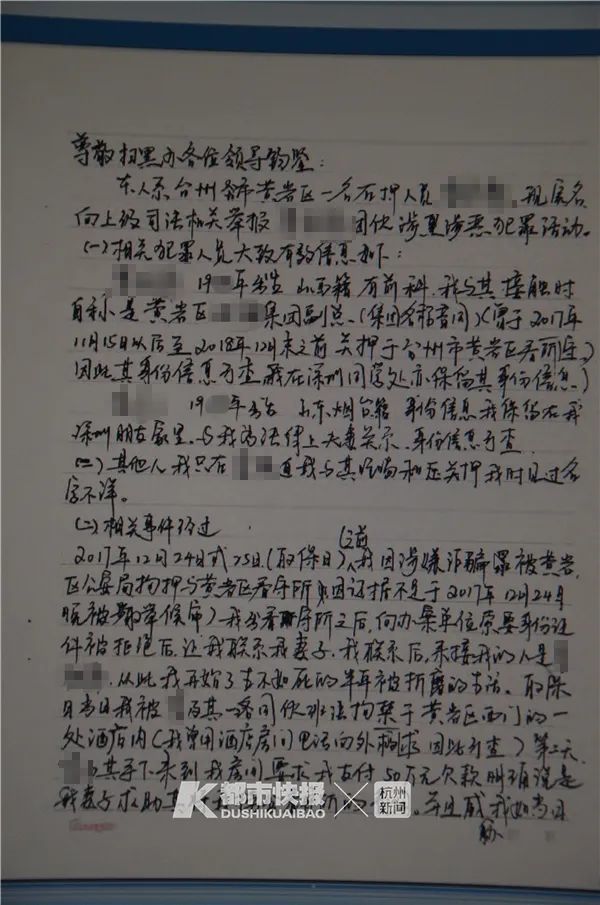 尊敬扫黑办各位领导钧鉴:
本人系台州市黄岩区一名在押人员 现实名
向上级司法相关举报 团伙涉黑涉恶犯罪活动。
(一)相关犯罪人员大致有效信息如下:
19 年出生 山西籍 有前科 我与其接触时
自称是黄岩区 集团副总、(集团名 音同)(曾于2017年
11月15日以后至2018年12月末之前关押于台州市黄岩区看守所
因此其身份信息可查 我在深圳 处亦保留其身份信息)
19 年出生 山东烟台籍 身份信息我保留在我
深圳朋友家里、与我为法律上夫妻关系、身份信息可查
(二)其他人我只在 逼我与其 和 关押我时见过名
字不详。
(二)相关事件经过
2017年12月24日或25日(取保日)之前 我因涉嫌诈骗罪被黄岩
区公安局拘押与黄岩区看守所 因证据不足于2017年12月24日
被取保候审)我出看守所之后,向办案单位索要身份证
件被拒绝后,让我联系我妻子、我联系后,来接我的人是
从此我开始了生不如死的半年被折磨的生活。取保
日当日我被 及其一路同伙非法拘禁于黄岩区西门的一
处酒店内(我曾用酒店房间电话向外 求 因此可查)第二天
其手下来到我房间要求我支付50万元欠款 说是
我妻子求助其 并且威 我如当日
胁
都市快报
DUSHIKUAIBAO
杭州新闻